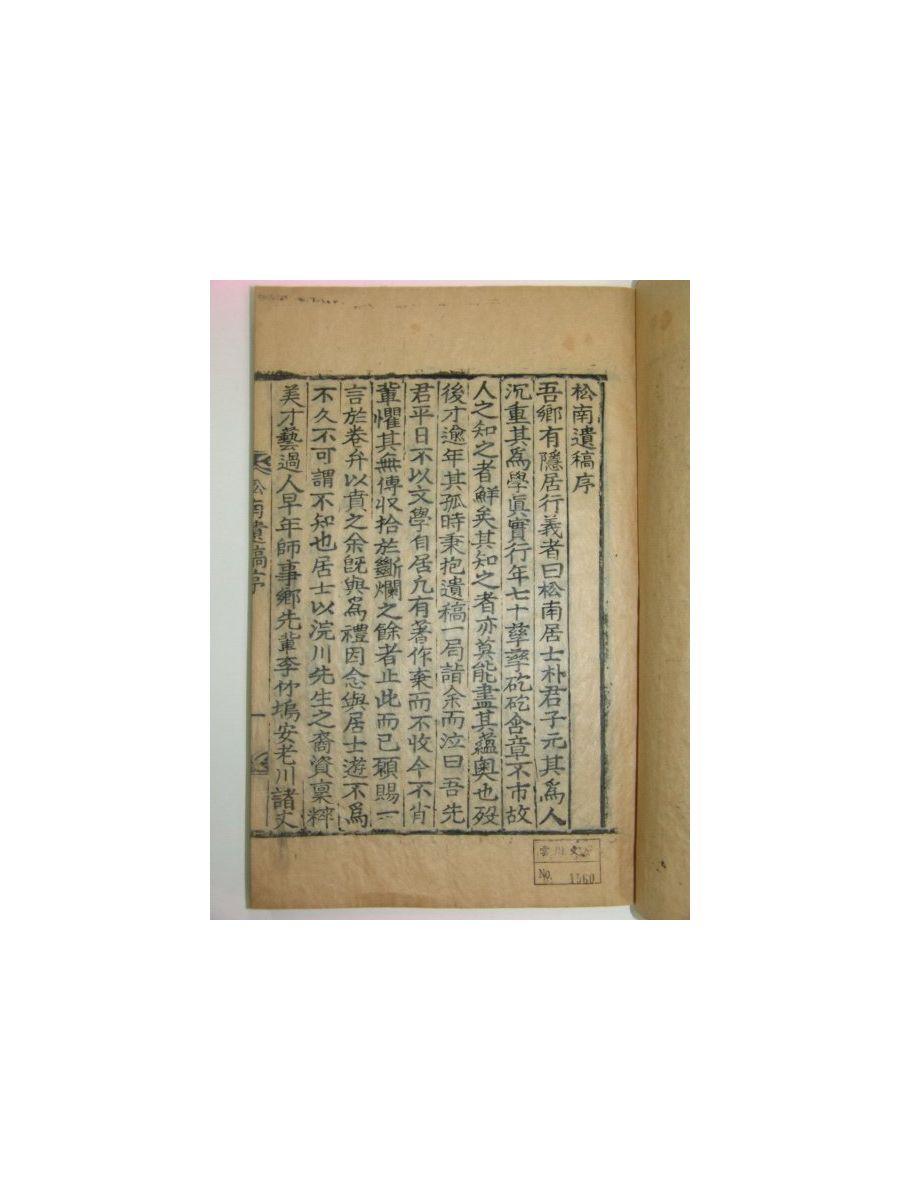 松南遺稿序
吾鄕有隱居行義者曰松南居士朴君子元其爲人
沉重其爲學眞實行年七十孶孶矻矻含章不市故
人之知之者鮮矣其知之者亦莫能盡其蘊奧也歿
後才逾年其孤時秉抱遺稿一局請余而泣曰吾先
君平日不以文學自居凢有著作棄而不收今不肖
輩懼其無傳収拾於斷爛之餘者止此而已願賜一
言於卷弁以賁之余旣與爲禮因念與居士遊不爲
不久不可謂不知也居士以浣川先生之裔資稟粹
美才藝過人早年師事鄕先輩李竹塢安老川諸丈
松南遺稿序
一
No. 1560